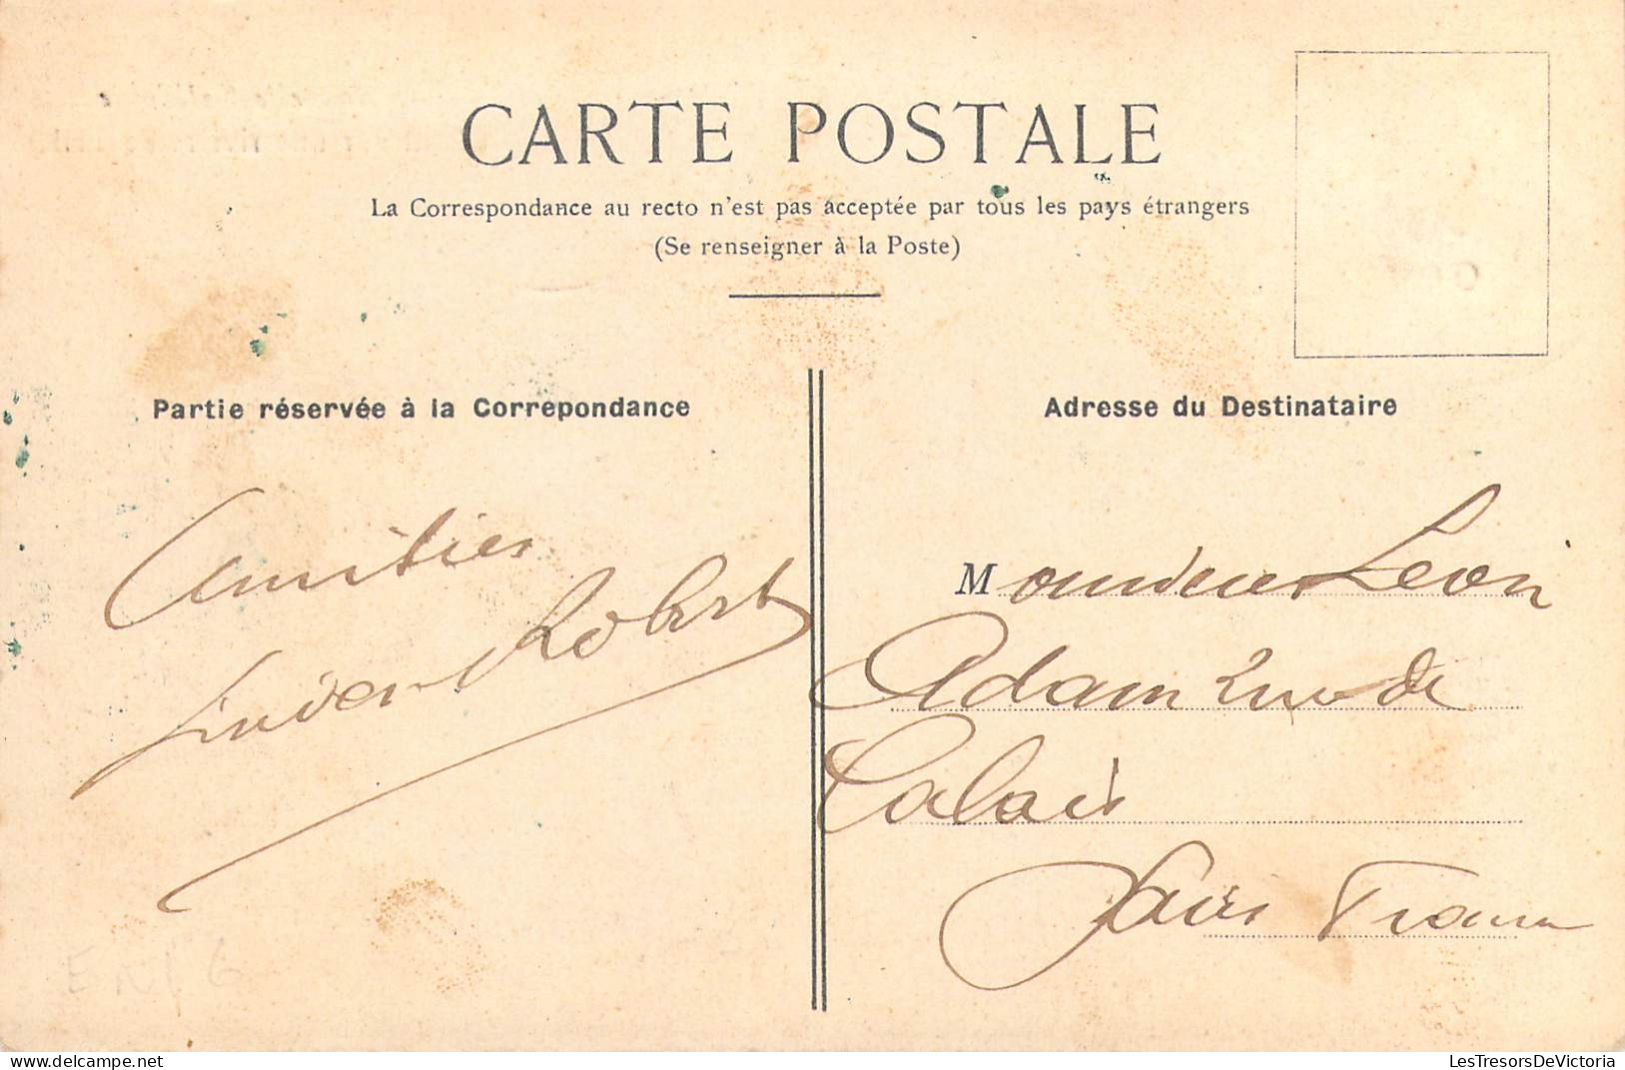 CARTE POSTALE
La Correspondance au recto n'est pas acceptée par tous les pays étrangers
(Se renseigner à la Poste)
Partie réservée à la Correpondance
Adresse du Destinataire
Amitiés
Robert
Monsieur Léon
Adam rue de
Calais
Paris France
LesTresorsDeVictoria